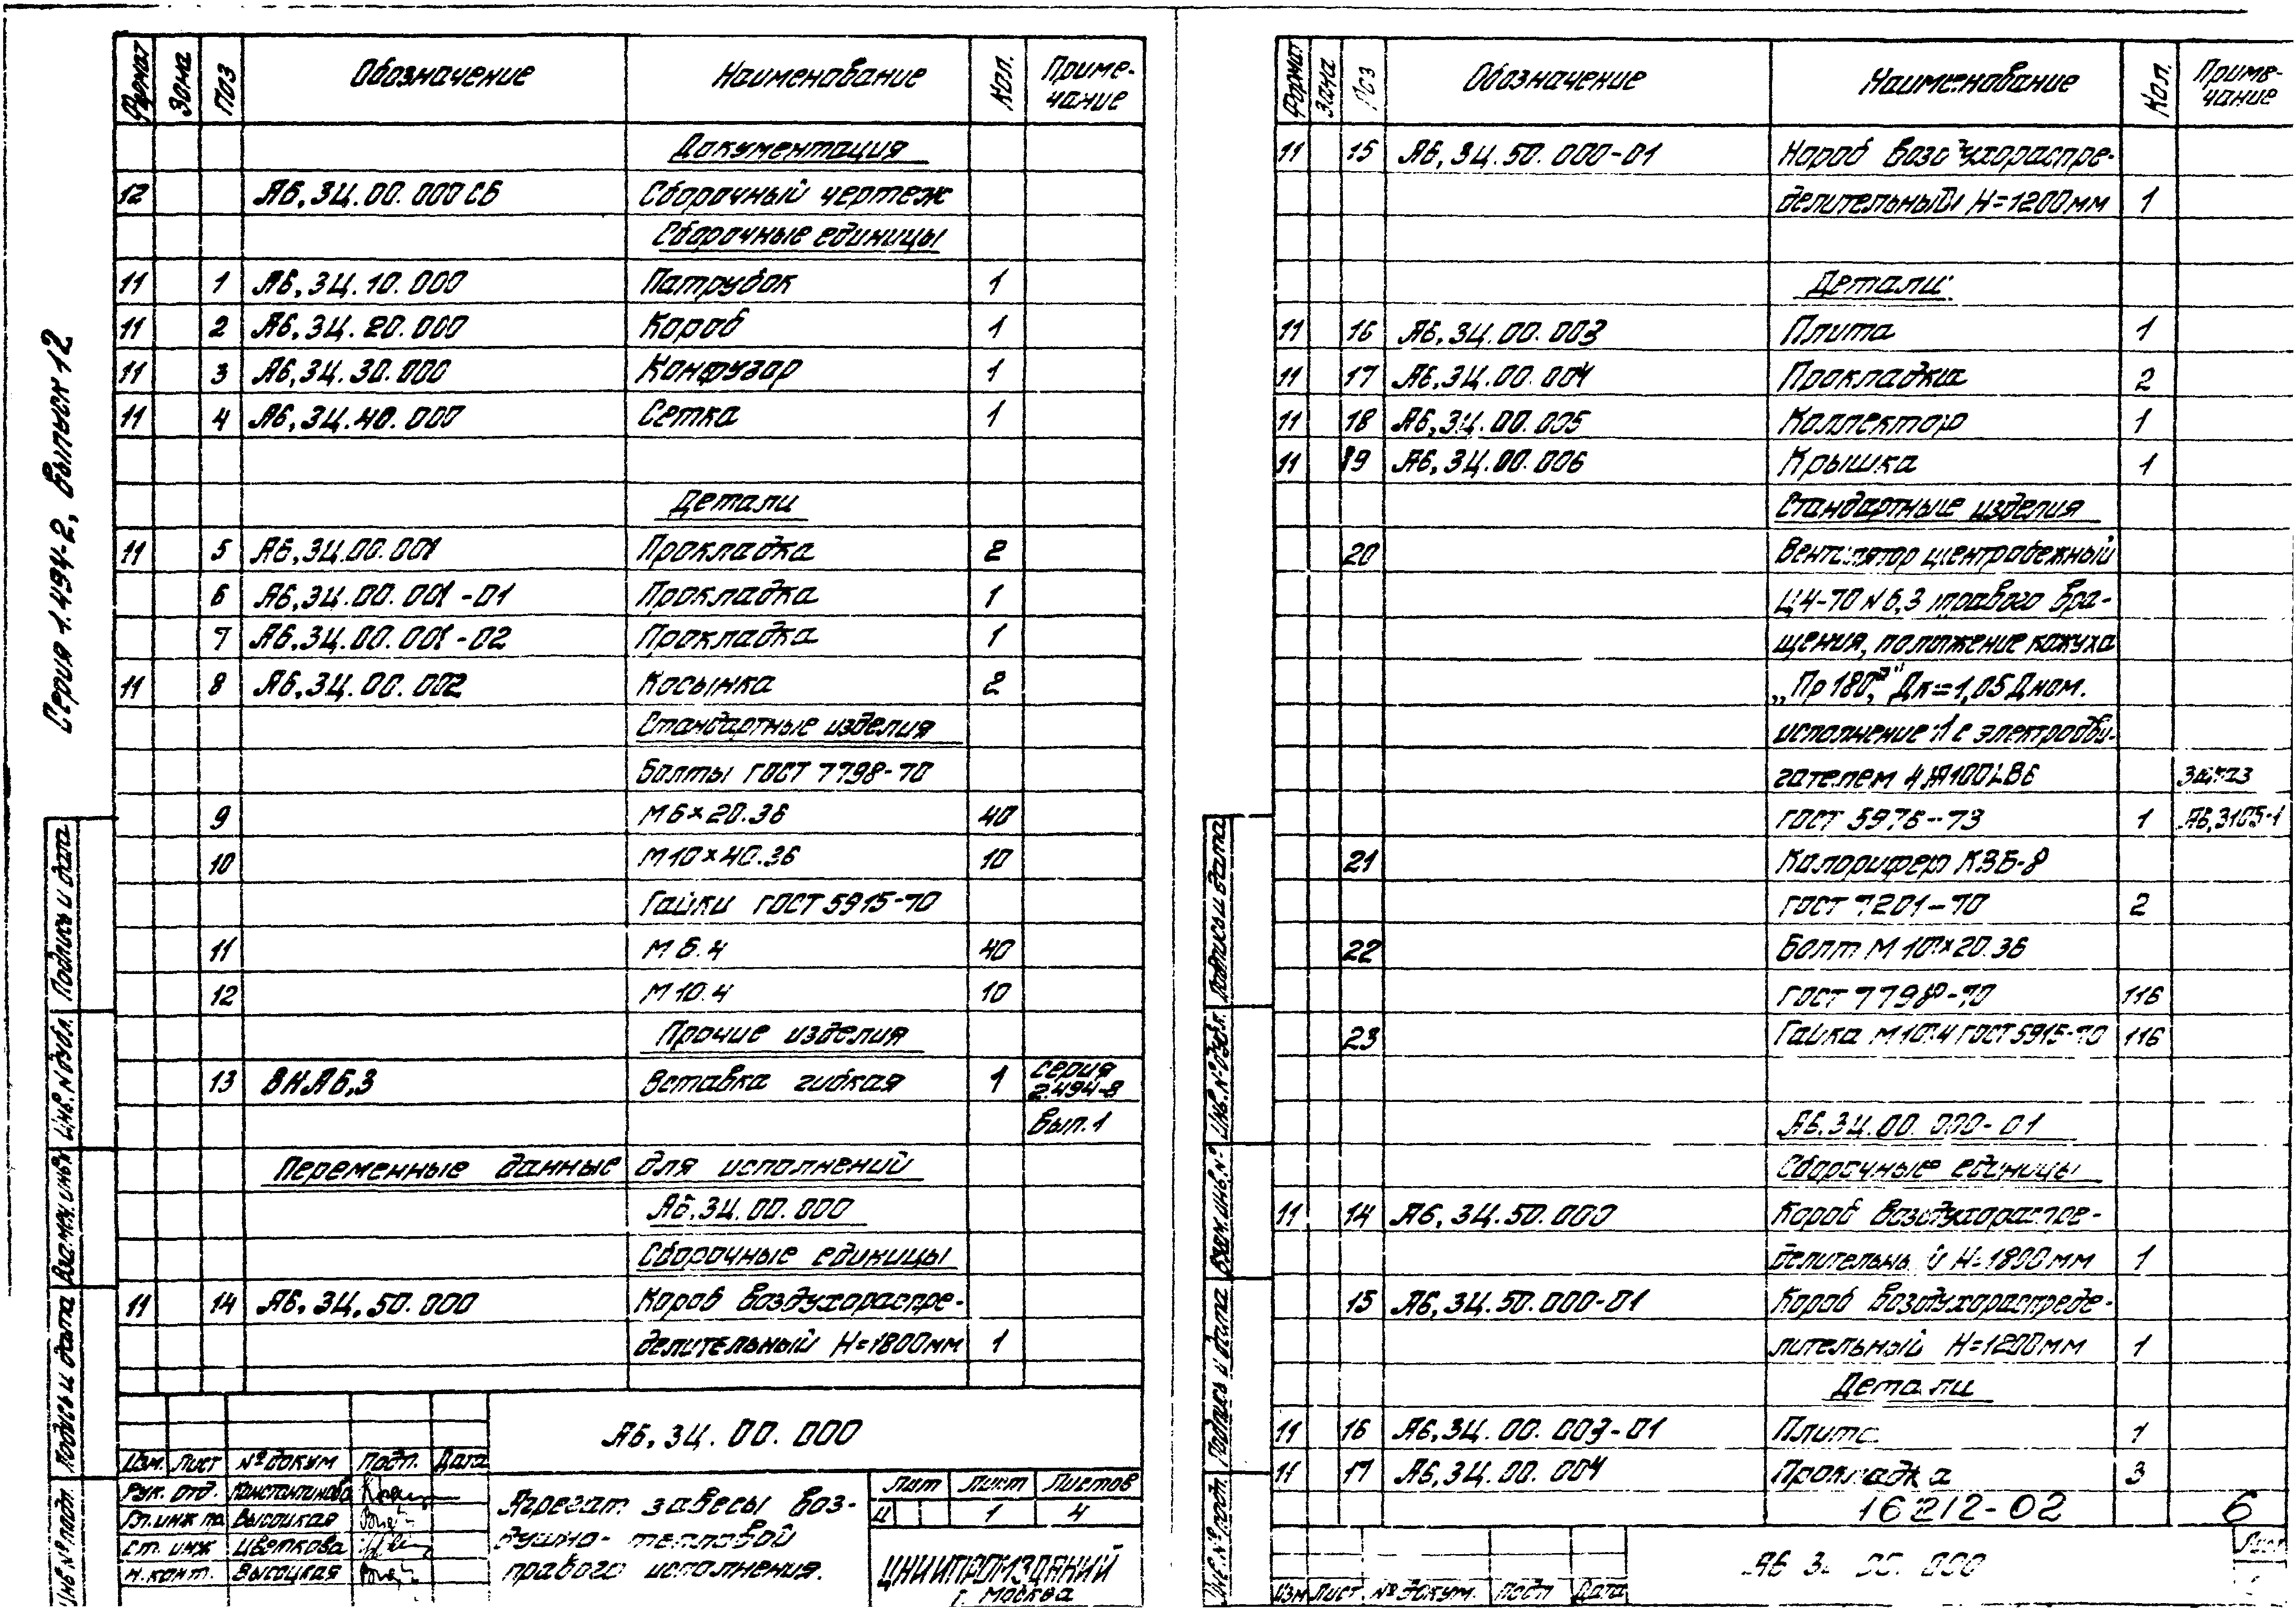 Серия 1.494-2, Выпуск 12
Формат Зона Поз Обозначение Наименование Кол. Приме-
чание
Документация
12 А6,3Ц.00.000СБ Сборочный чертеж
Сборочные единицы
11 1 А6,3Ц.10.000 Патрубок 1
11 2 А6,3Ц.20.000 Короб 1
11 3 А6,3Ц.30.000 Конфузор 1
11 4 А6,3Ц.40.000 Сетка 1
Детали
11 5 А6,3Ц.00.001 Прокладка 2
6 А6,3Ц.00.001-01 Прокладка 1
7 А6,3Ц.00.001-02 Прокладка 1
11 8 А6,3Ц.00.002 Косынка 2
Стандартные изделия
Болты ГОСТ 7798-70
9 М6×20.36 40
10 М10×40.36 10
Гайки ГОСТ 5915-70
11 М6.4 40
12 М10.4 10
Прочие изделия
13 ВНА6,3 Вставка гибкая 1 серия
2.494-8
Вып.1
Переменные данные для исполнений
А6,3Ц.00.000
Сборочные единицы
11 14 А6,3Ц.50.000 Короб воздухораспре-
делительный Н=1800мм 1
А6,3Ц.00.000
Изм. Лист № докум Подп. Дата
Рук. отд. Константинова
Гл.инж пр Высоцкая
Ст. инж Цветкова
Н.конт. Высоцкая
Агрегат завесы воз-
душно-тепловой
правого исполнения.
Лит Лист Листов
И 1 4
ЦНИИПРОМЗДАНИЙ
г. Москва
Подпись и дата
Инв.№ дубл.
Взам. инв.№
Подпись и дата
Инв № подл.
Формат Зона Поз Обозначение Наименование Кол. Приме-
чание
11 15 А6,3Ц.50.000-01 Короб воздухораспре-
делительный Н=1200мм 1
Детали
11 16 А6,3Ц.00.003 Плита 1
11 17 А6,3Ц.00.004 Прокладка 2
11 18 А6,3Ц.00.005 Коллектор 1
11 19 А6,3Ц.00.006 Крышка 1
Стандартные изделия
20 Вентилятор центробежный
Ц4-70 №6,3 правого вра-
щения, положение кожуха
„Пр 180°," Дк=1,05 Дном.
исполнение 1 с электродви-
гателем 4А100LB6 заказ
ГОСТ 5976-73 1 А6,3105-1
21 Калорифер КВБ-8
ГОСТ 7201-70 2
22 Болт М10×20.36
ГОСТ 7798-70 116
23 Гайка М10.4 ГОСТ 5915-70 116
А6,3Ц.00.000-01
Сборочные единицы
11 14 А6,3Ц.50.000 Короб воздухораспре-
делительный Н=1800мм 1
15 А6,3Ц.50.000-01 Короб воздухораспреде-
лительный Н=1200мм 1
Детали
11 16 А6,3Ц.00.003-01 Плита 1
11 17 А6,3Ц.00.004 Прокладка 3
16212-02 6
Изм Лист № докум. Подп Дата
А6 3Ц 00.000
Лист
Подпись и дата
Инв.№ дубл.
Взам. инв.№
Подпись и дата
Инв.№ подл.